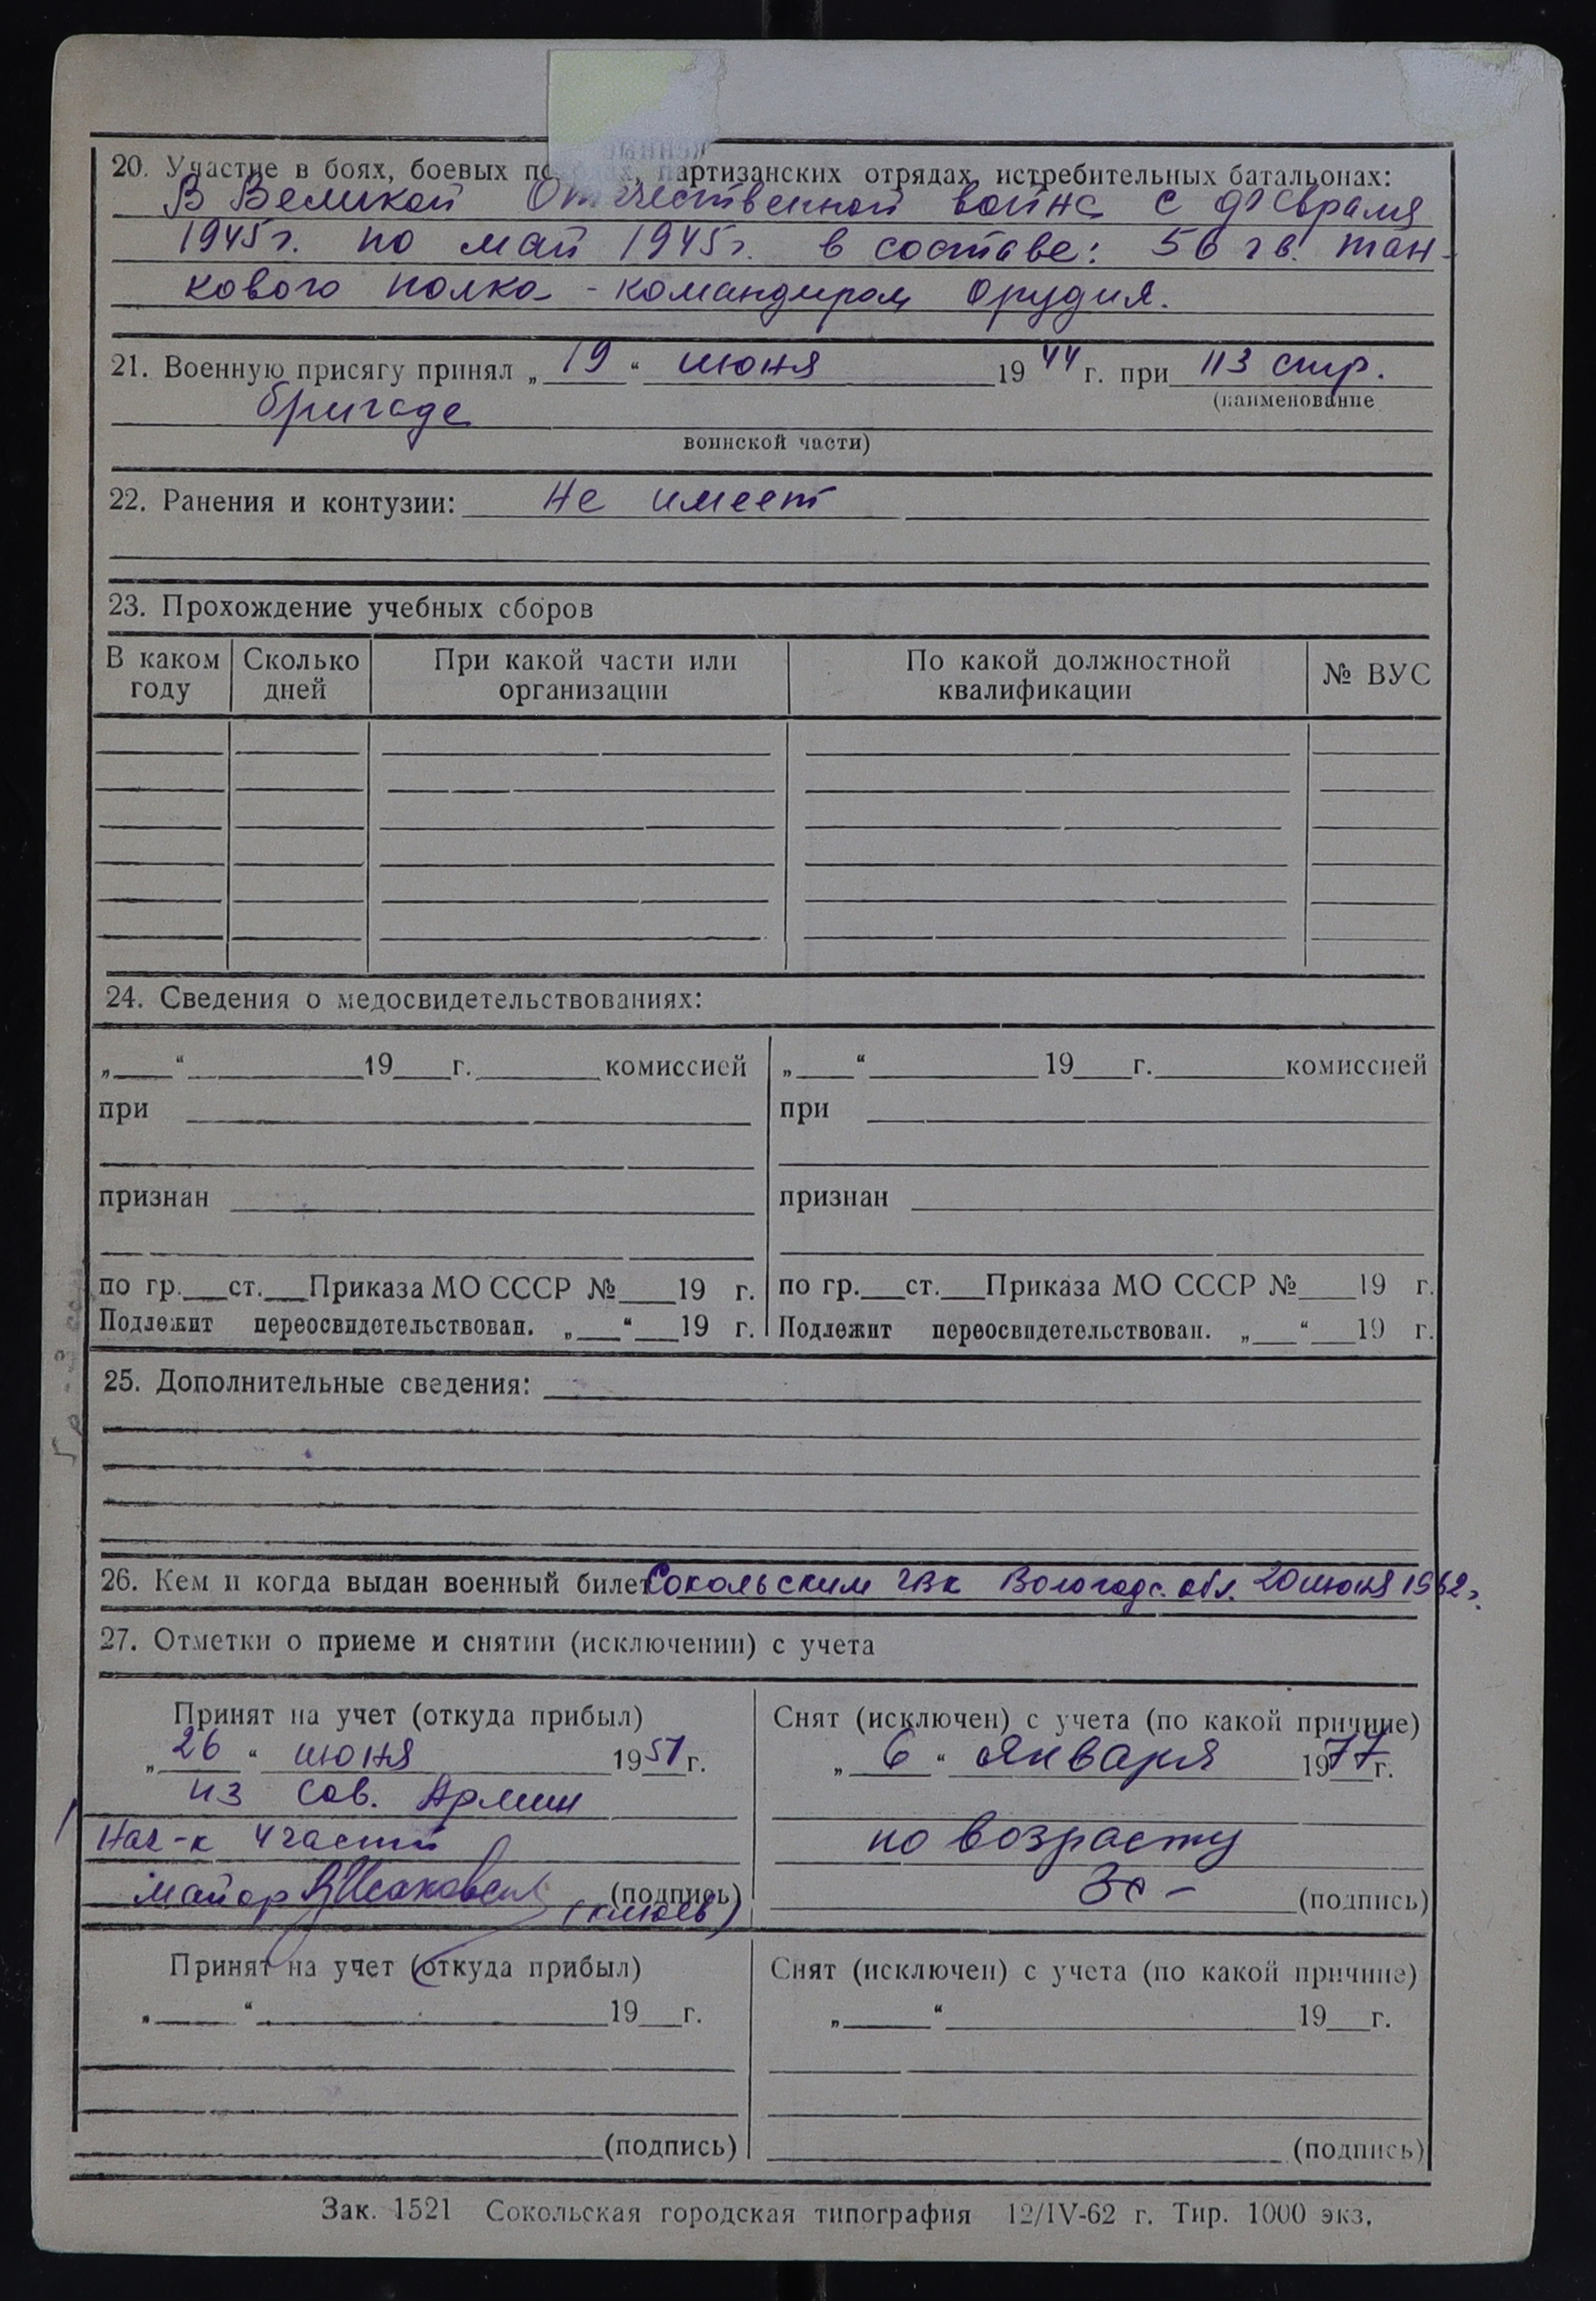 20. Участие в боях, боевых по    х, партизанских отрядах, истребительных батальонах:
В Великой Отечественной войне с февраля
1945 г. по май 1945 г. в составе: 56 гв. тан-
кового полка - командиром орудия.
21. Военную присягу принял „ 19 “ июня 19 44 г. при 113 стр.
(наименование
бригаде
воинской части)
22. Ранения и контузии: Не имеет
23. Прохождение учебных сборов
В каком году | Сколько дней | При какой части или организации | По какой должностной квалификации | № ВУС
24. Сведения о медосвидетельствованиях:
„___“ ______19__г. ______комиссией | „___“ ______19__г. ______комиссией
при | при
признан | признан
по гр.__ст.__Приказа МО СССР №__19 г. | по гр.__ст.__Приказа МО СССР №__19 г.
Подлежит переосвидетельствован. „__“__19 г. | Подлежит переосвидетельствован. „__“__19 г.
25. Дополнительные сведения:
26. Кем и когда выдан военный билет Сокольским ГВК Вологодс. обл. 20 июня 1962 г.
27. Отметки о приеме и снятии (исключении) с учета
Принят на учет (откуда прибыл)
„ 26 “ июня 19 51 г.
из Сов. Армии
Нач-к 4 части
майор (подпись)
(Клюев)
Снят (исключен) с учета (по какой причине)
„ 6 “ января 19 77 г.
по возрасту
(подпись)
Принят на учет (откуда прибыл)
„___“ ______19__г.
(подпись)
Снят (исключен) с учета (по какой причине)
„___“ ______19__г.
(подпись)
Зак. 1521 Сокольская городская типография 12/IV-62 г. Тир. 1000 экз.